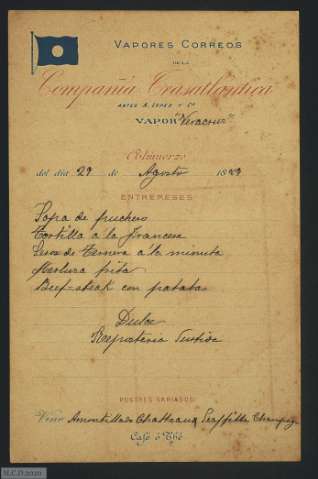 VAPORES CORREOS
DE LA
Compañia Trasatlantica
ANTES A. LOPEZ Y Cª
VAPOR "Veracruz"
Almuerzo
del día 29 de Agosto 1889
ENTREMESES
Sopa de puchero
Tortilla á la francesa
Sesos de ternera á la minuta
Merluza frita
Beef-steak con patatas
Dulce
Repostería Surtida
POSTRES VARIADOS
Vino Amontillado Chatteaux Laffitte Champag
Café ó Thé
N.C.D 2020